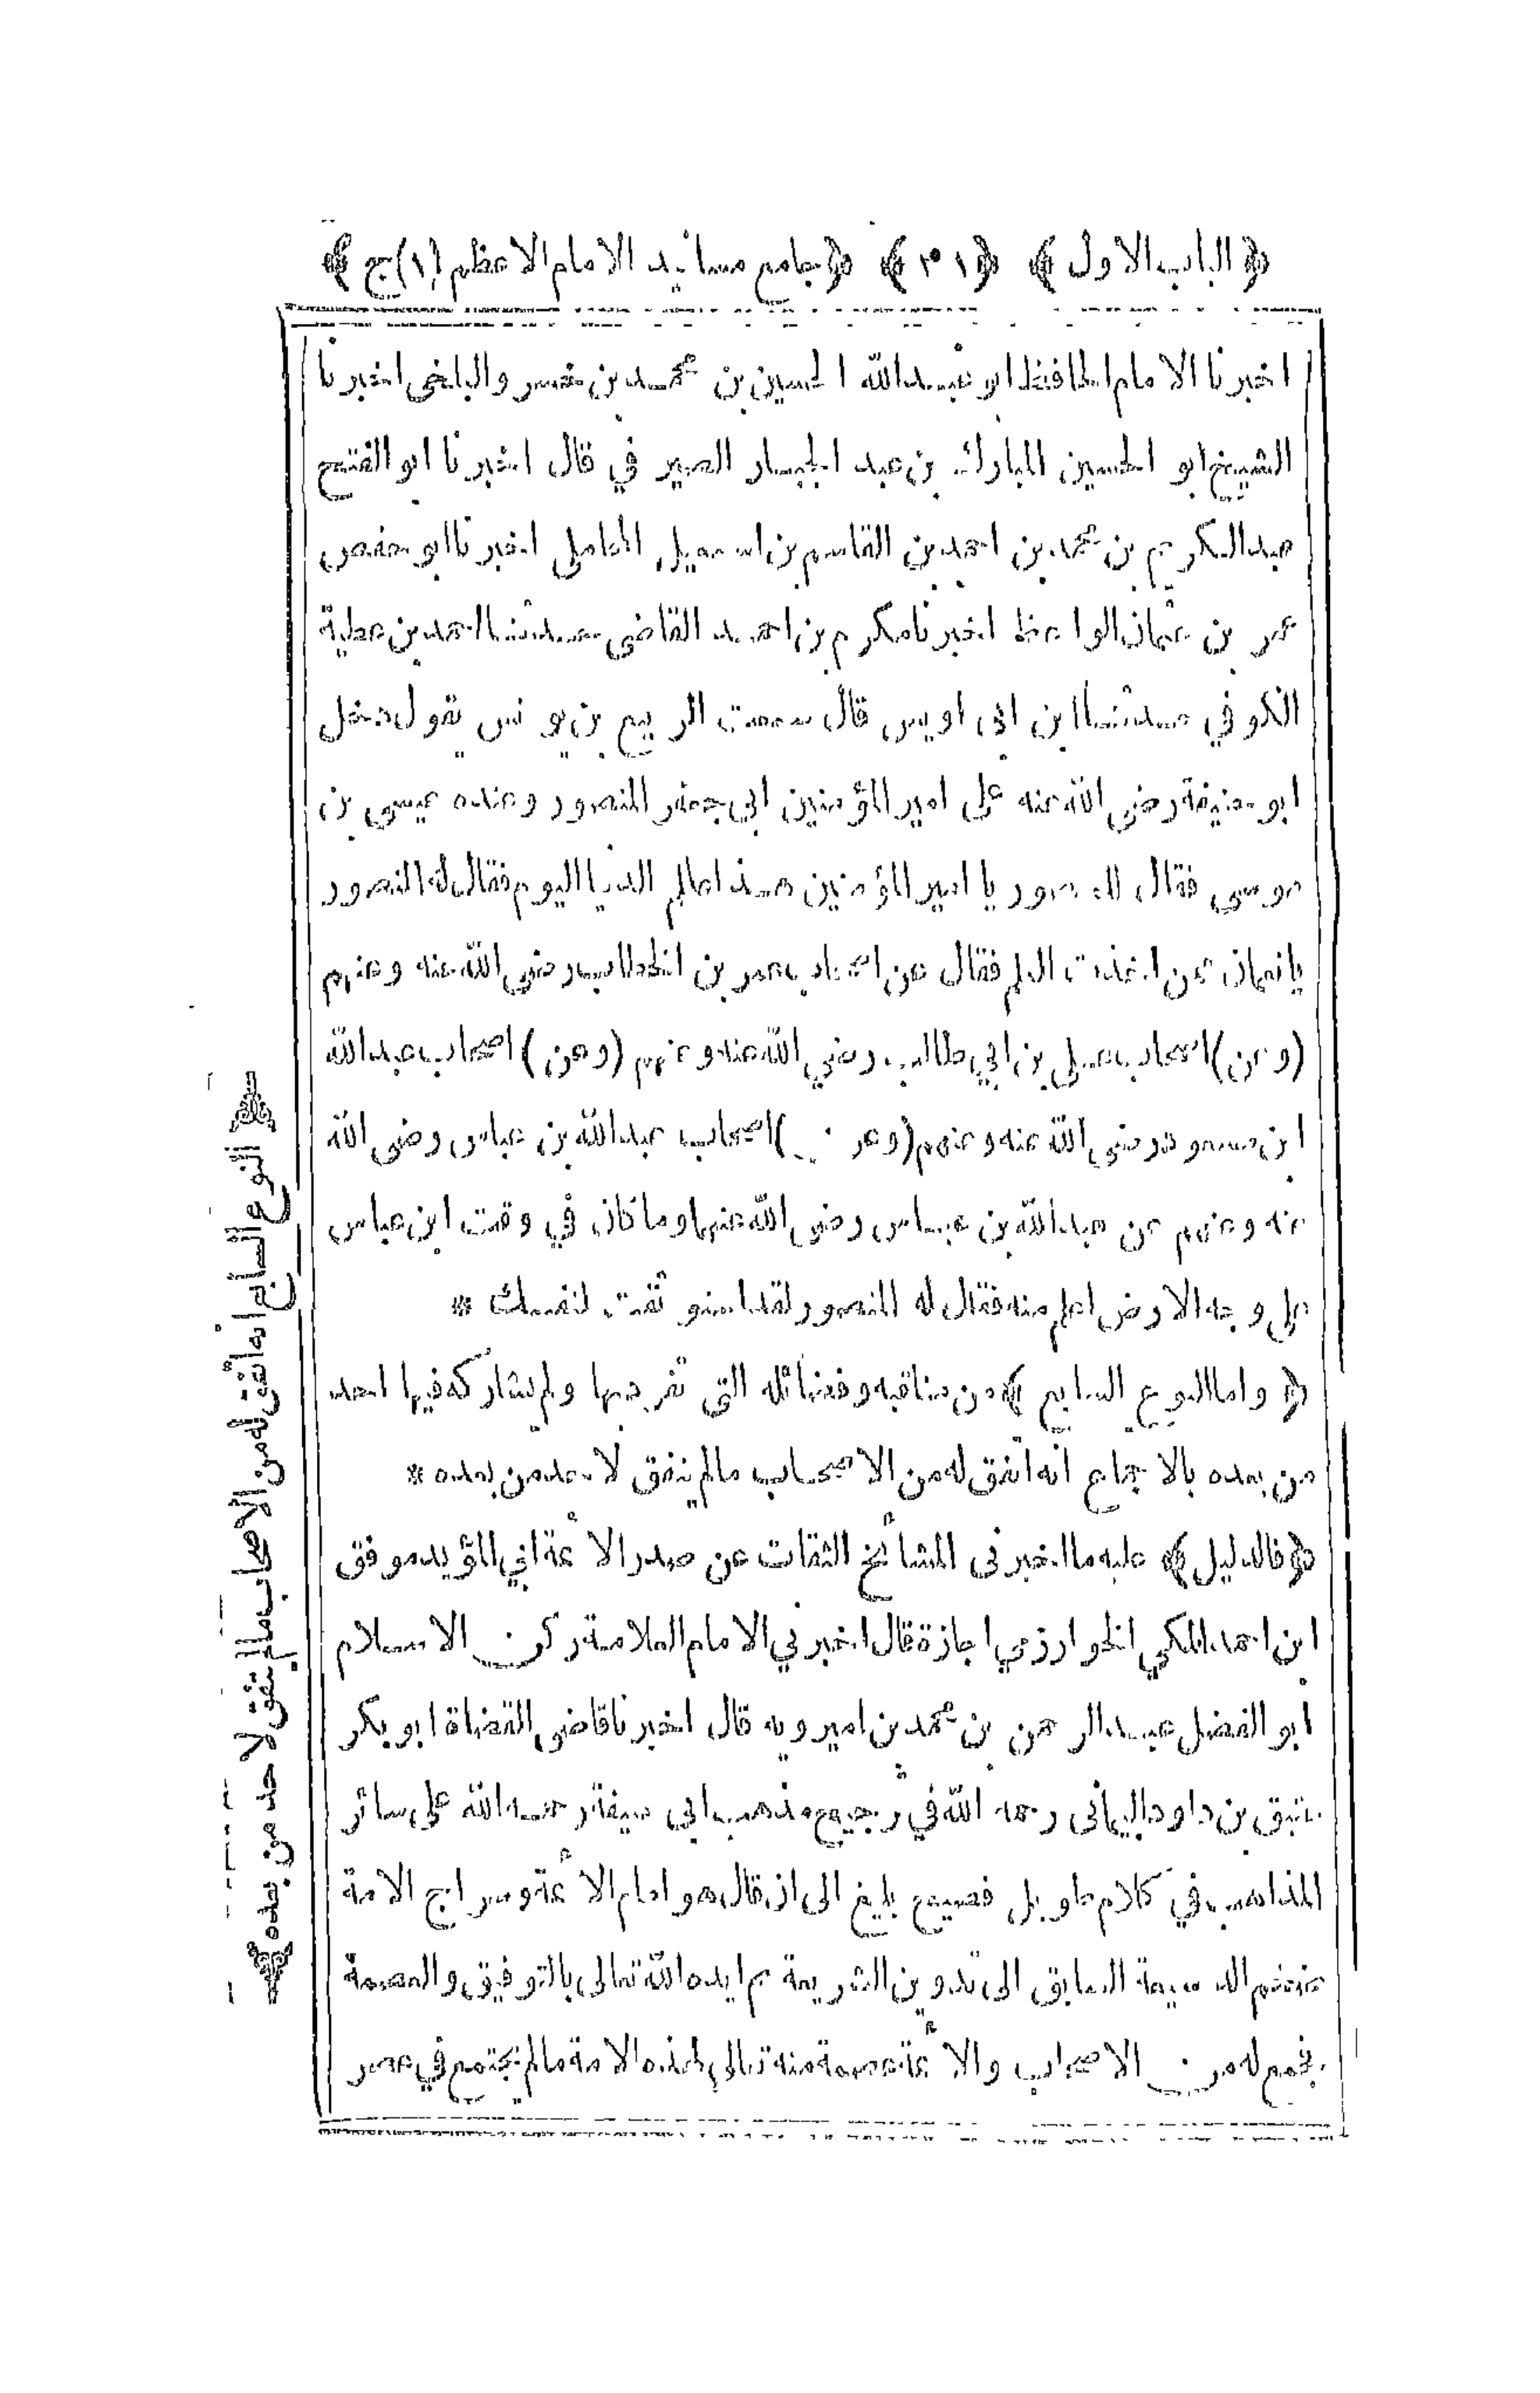 ﴿الباب الاول﴾ ﴿٣١﴾ ﴿جامع مسانيد الامام الاعظم (١)ج﴾
اخبرنا الامام الحافظ ابو عبد الله الحسين بن محمد بن خسر والبلخى اخبرنا
الشيخ ابو الحسين المبارك بن عبد الجبار الصير في قال اخبرنا ابو الفتح
عبدالكريم بن محمد بن احمد بن القاسم بن اسمعيل المحاملى اخبرنا ابو حفص
عمر بن عثمان الواعظ اخبرنا مكرم بن احمد القاضى حدثنا احمد بن عطية
الكوفي حدثنا ابن ابى اويس قال سمعت الربيع بن يونس يقول دخل
ابو حنيفة رضى الله عنه على امير المؤمنين ابي جعفر المنصور وعنده عيسى بن
موسى فقال للمنصور يا امير المؤمنين هذا عالم الدنيا اليوم فقال له المنصور
يا نعمان عمن اخذت العلم فقال عن اصحاب عمر بن الخطاب رضى الله عنه وعنهم
(وعن) اصحاب على بن ابي طالب رضي الله عنه وعنهم (وعن) اصحاب عبد الله
ابن مسعود رضى الله عنه وعنهم (وعن) اصحاب عبد الله بن عباس رضى الله
عنه وعنهم عن عبد الله بن عباس رضى الله عنهما وما كان في وقت ابن عباس
على وجه الارض اعلم منه فقال له المنصور لقد استوثقت لنفسك *
﴿واما النوع السابع﴾ من مناقبه وفضائله التى تفرد بها ولم يشاركه فيها احد
من بعده بالاجماع انه اتفق له من الاصحاب مالم يتفق لاحد من بعده *
﴿فالدليل﴾ عليه ما اخبرنى المشائخ الثقات عن صدر الائمة ابي المؤيد موفق
ابن احمد المكي الخوارزمي اجازة قال اخبرني الامام العلامة ركن الاسلام
ابو الفضل عبد الرحمن بن محمد بن اميرويه قال اخبرنا قاضى القضاة ابو بكر
عتيق بن داود اليمانى رحمه الله في ترجيح مذهب ابى حنيفة رحمه الله على سائر
المذاهب في كلام طويل فصيح بليغ الى ان قال هو امام الائمة وسراج الامة
ضخم الدسيعة السابق الى تدوين الشريعة ثم ايده الله تعالى بالتوفيق والعصمة
فجمع له من الاصحاب والائمة عصمة منه تعالى لهذه الامة مالم يجتمع في عصر
﴿النوع السابع انه اتفق له من الاصحاب مالم يتفق لاحد من بعده﴾